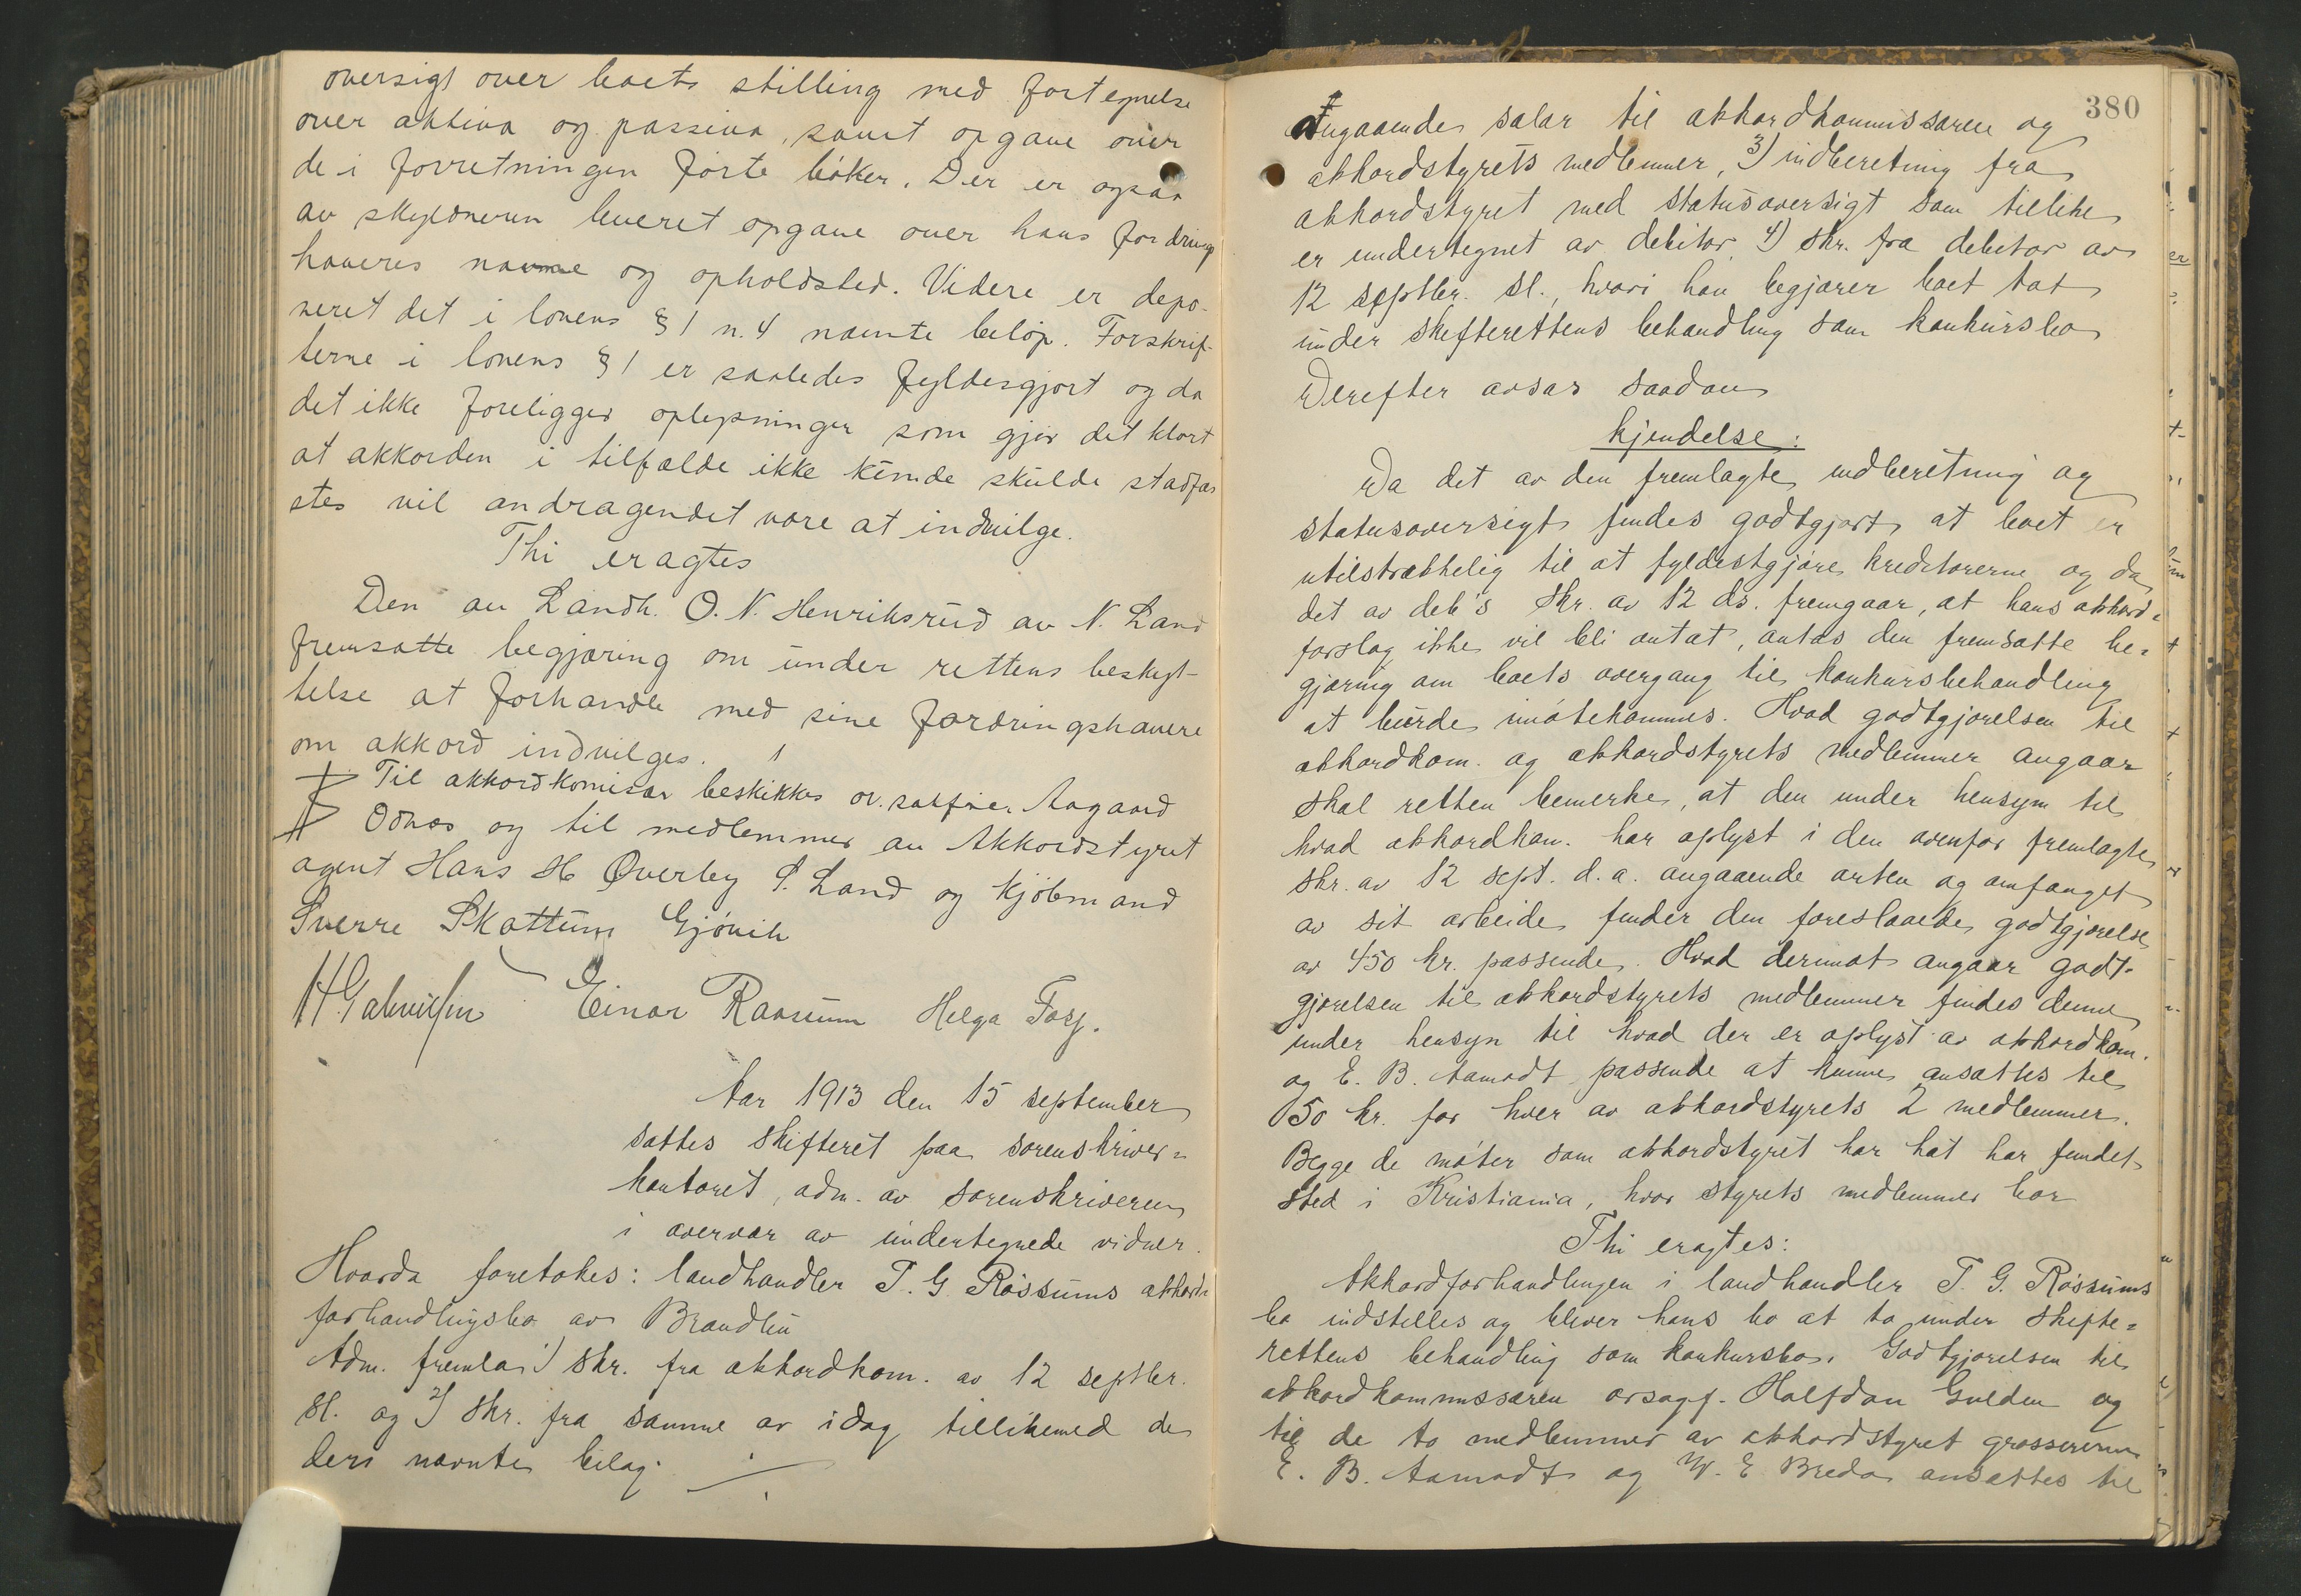 oversigt over boets stilling med fortegnelse
over aktiva og passiva, samt opgave over
de i forretningen førte bøker. Der er ogsaa
av skyldneren leveret opgave over hans fordrings
haveres navne og opholdsted. Videre er depo-
neret det i lovens § 1 n. 4 nævnte beløp. Forskrif-
terne i lovens § 1 er saaledes fyldesgjort og da
det ikke foreligger oplysninger som gjør det klart
at akkorden i tilfælde ikke kunde skulde stadfæ
stes vil andragendet være at indvilge.
Thi eragtes
Den av Landh. O. N. Henriksrud av N. Land
fremsatte begjæring om under rettens beskyt-
telse at forhandle med sine fordringshavere
om akkord indvilges.
Til akkordkomisær beskikkes ov. sakfører Aagaard
Odnæs og til medlemmer av Akkordstyret
agent Hans H Øverby S. Land og kjøbmand
Sverre Skattum Gjøvik
H Gabrielsen Einar Raasum Helga Fosj.
Aar 1913 den 15 september
sattes skifteret paa sorenskriver=
kontoret, adm. av sorenskriveren
i overvær av undertegnede vidner.
Hvorda foretokes: landhandler T. G. Røssums akkord=
forhandlingsbo av Brandbu
Adm. fremla 1) skr. fra akkordkom. av 12 septbr.
sl. og 2) skr. fra samme av idag tillikemed de
deri nævnte bilag.
380
angaaende salær til akkordkommissæren og
akkordstyrets medlemmer, 3) indberetning fra
akkordstyret med statusoversigt som tillike
er undertegnet av debitor 4) skr. fra debitor av
12 septbr. sl., hvori han begjærer boet tat
under skifterettens behandling som konkursbo
Derefter avsas saadan
kjendelse:
Da det av den fremlagte indberetning og
statusoversigt findes godtgjort, at boet er
utilstrækkelig til at fyldestgjøre kreditorerne og da
det av deb's skr. av 12 ds. fremgaar, at hans akkord=
forslag ikke vil bli antat, antas den fremsatte be=
gjæring om boets overgang til konkursbehandling
at burde imøtekommes. Hvad godtgjørelsen til
akkordkom. og akkordstyrets medlemmer angaar
skal retten bemerke, at den under hensyn til
hvad akkordkom. har oplyst i den ovenfor fremlagte
skr. av 12 sept. d.a. angaaende arten og omfanget
av sit arbeide finder den foreslaaede godtgjørelse
av 450 kr. passende. Hvad derimot angaar godt-
gjørelsen til akkordstyrets medlemmer findes denne
under hensyn til hvad der er oplyst av akkordkom.
og E. B. Aamodt passende at kunne ansættes til
150 kr. for hver av akkordstyrets 2 medlemmer.
Begge de møter som akkordstyret har hat har fundet
sted i Kristiania, hvor styrets medlemmer bor
Thi eragtes:
Akkordforhandlingen i landhandler T. G. Røssums
bo indstilles og bliver hans bo at ta under skifte=
rettens behandling som konkursbo. Godtgjørelsen til
akkordkommissæren orsagf. Halfdan Gulden og
til de to medlemmer av akkordstyret grossererne
E. B. Aamodt og W. E Breda ansættes til